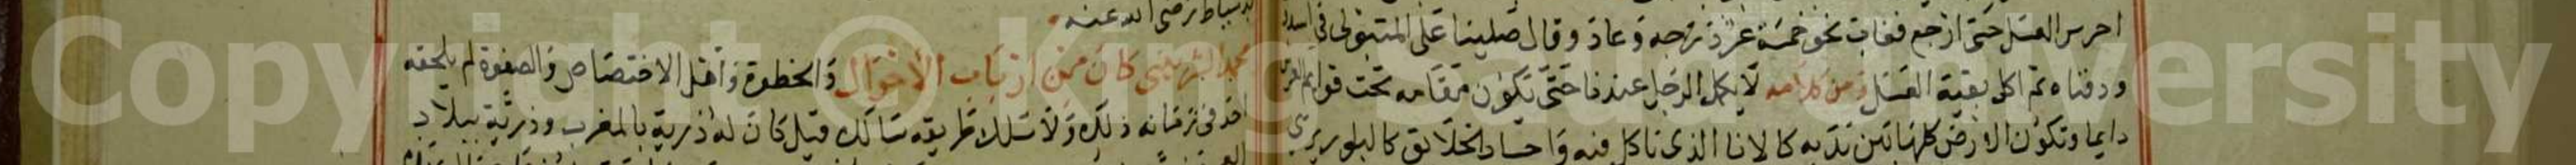 احرس العسل حتى ارجع فغاب نحو خمسة عشر درجه وعاد وقال صلينا على المتبولى فى اسدود
ودفناه ثم اكل بقية العسل ومن كلامه لا يكمل الرجل عندنا حتى يكون مقامه تحت قوائم العرش
دايما وتكون الارض كلها بين يديه كالانا الذى ناكل فيه واجساد الخلائق كالبلور يرى
رضى الله عنه
محمد الشربينى كان من ارباب الاحوال والخطوة واهل الاختصاص والصفوة لم يلحقه
احد فى زمانه ذلك ولا سلك طريقه سالك قيل كان له ذرية بالمغرب وذرية ببلاد
Copyright © King Saud University